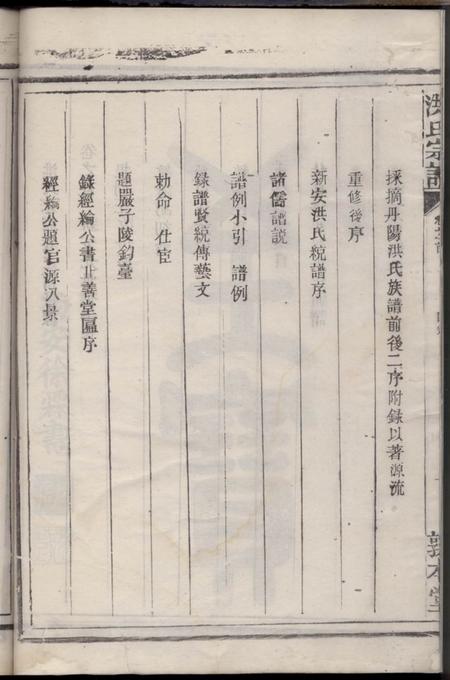 洪氏宗譜
敦本堂
採摘丹陽洪氏族譜前後二序附錄以著源流
重修後序
新安洪氏統譜序
諸儒譜説
譜例小引　譜例
錄譜賢統傳藝文
勅命　仕宦
題嚴子陵釣臺
錄經綸公書止善堂匾序
經綸公題官源八景